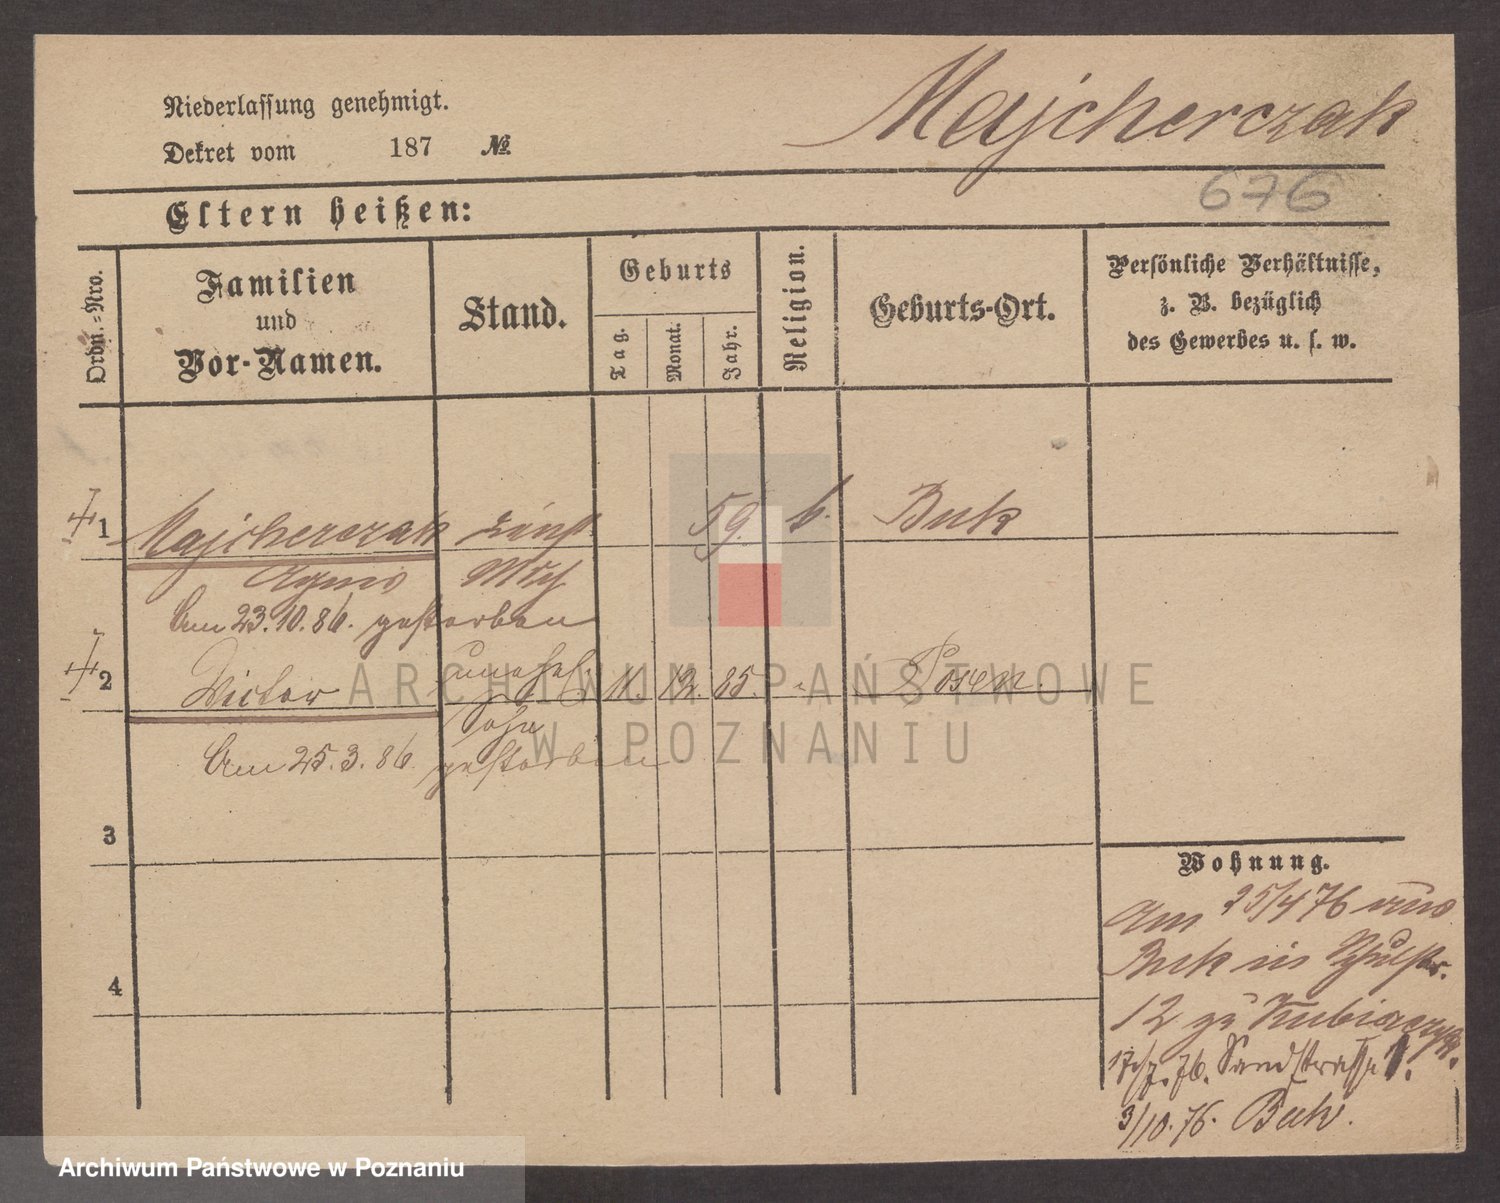 Niederlassung genehmigt.
Dekret vom 187 №
Majcherczak
676
Eltern heißen:
Ordn.-Nro.
Familien
und
Vor-Namen.
Stand.
Geburts
Tag.
Monat.
Jahr.
Religion.
Geburts-Ort.
Persönliche Verhältnisse,
z. B. bezüglich
des Gewerbes u. s. w.
1 Majcherczak 59. k. Buk
Agnes
Am 23.10.86. gestorben
2 Victor unehel. 11. 12. 85. " Posen
Sohn
Am 25.3.86 gestorben
3
4
Wohnung.
Am 25/4 76 aus
Buk in Schulstr.
12 zu Kubiaczyk.
17/7. 76. Sandstrasse 1.
3/10. 76. Buk.
ARCHIWUM PAŃSTWOWE
W POZNANIU
Archiwum Państwowe w Poznaniu